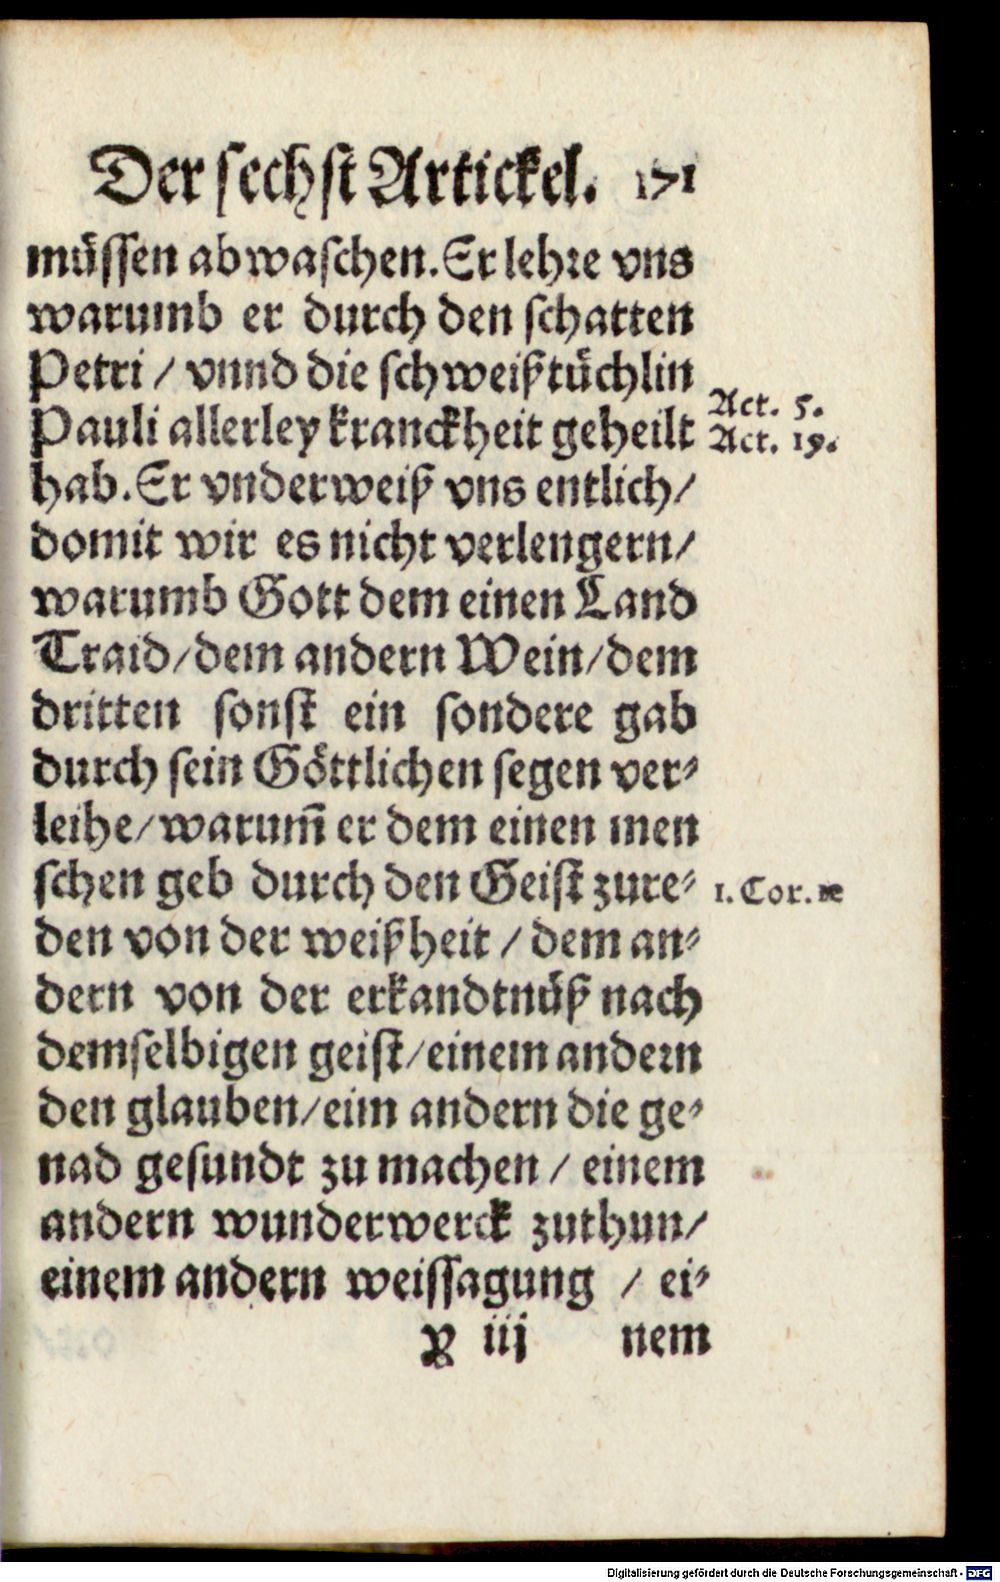 Der sechst Artickel. 171
müssen abwaschen. Er lehre vns
warumb er durch den schatten
Petri / vnnd die schweißtüchlin
Act. 5.
Pauli allerley kranckheit geheilt
Act. 19.
hab. Er vnderweiß vns entlich /
domit wir es nicht verlengern /
warumb Gott dem einen Land
Traid / dem andern Wein / dem
dritten sonst ein sondere gab
durch sein Göttlichen segen ver-
leihe / warum̃ er dem einen men
schen geb durch den Geist zure-
1. Cor. 12
den von der weißheit / dem an-
dern von der erkandtnüß nach
demselbigen geist / einem andern
den glauben / eim andern die ge-
nad gesundt zu machen / einem
andern wunderwerck zuthun /
einem andern weissagung / ei-
Y iij nem
Digitalisierung gefördert durch die Deutsche Forschungsgemeinschaft - DFG